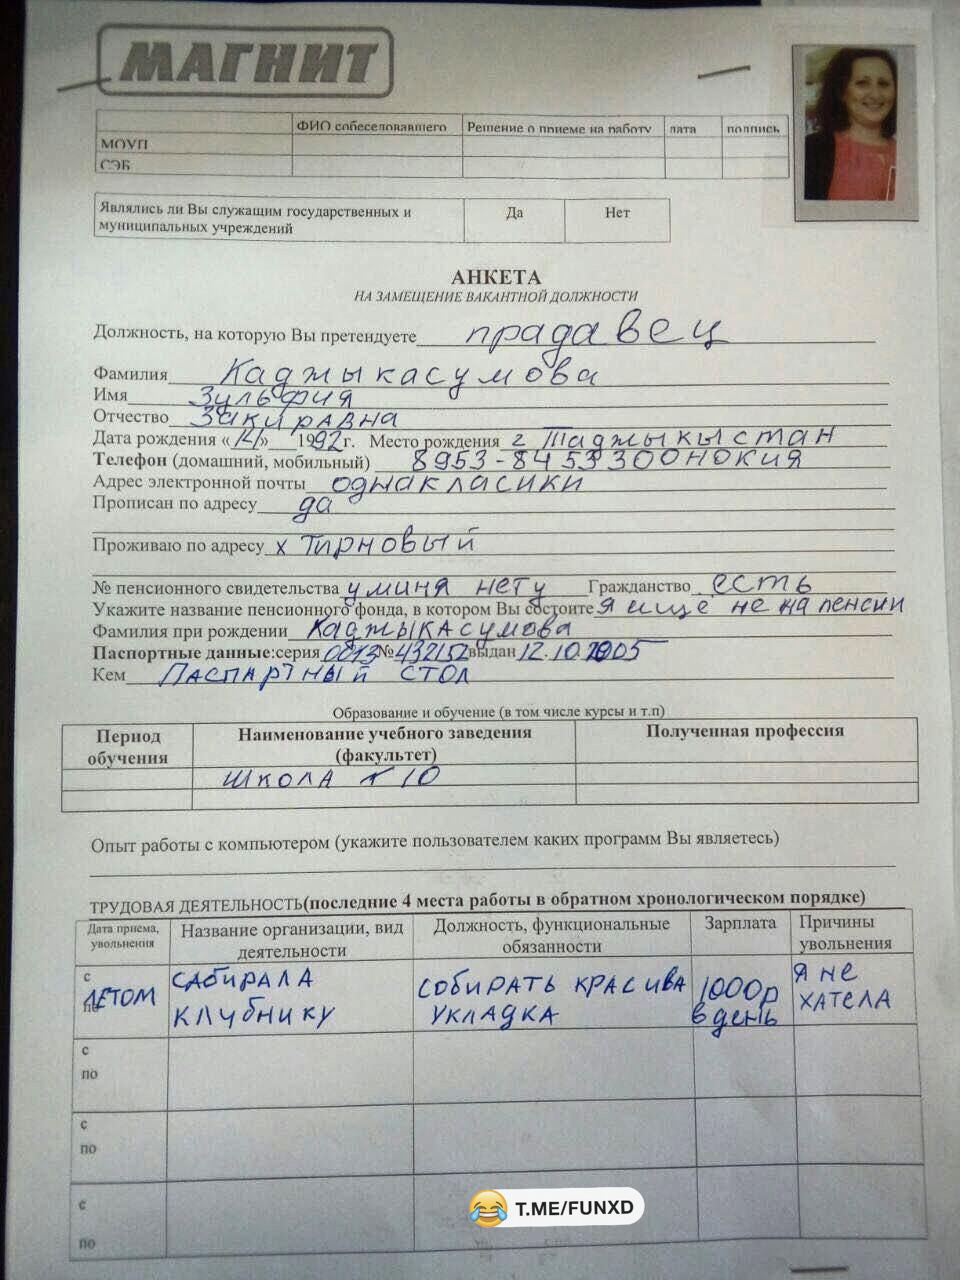 МАГНИТ
ФИО собеседовавшего Решение о приеме на работу дата подпись
МОУП
СЭБ
Являлись ли Вы служащим государственных и муниципальных учреждений Да Нет
АНКЕТА
НА ЗАМЕЩЕНИЕ ВАКАНТНОЙ ДОЛЖНОСТИ
Должность, на которую Вы претендуете прадавец
Фамилия Каджыкасумова
Имя Зульфия
Отчество Закиравна
Дата рождения «14» 1992г. Место рождения г Таджыкыстан
Телефон (домашний, мобильный) 8953-8453300нокия
Адрес электронной почты однакласики
Прописан по адресу да
Проживаю по адресу х Тирновый
№ пенсионного свидетельства у миня нету Гражданство есть
Укажите название пенсионного фонда, в котором Вы состоите я ище не на пенсии
Фамилия при рождении Каджыкасумова
Паспортные данные:серия 0013 № 432152 выдан 12.10.2005
Кем Паспартный стол
Образование и обучение (в том числе курсы и т.п)
Период обучения Наименование учебного заведения (факультет) Полученная профессия
школа № 10
Опыт работы с компьютером (укажите пользователем каких программ Вы являетесь)
ТРУДОВАЯ ДЕЯТЕЛЬНОСТЬ(последние 4 места работы в обратном хронологическом порядке)
Дата приема, увольнения Название организации, вид деятельности Должность, функциональные обязанности Зарплата Причины увольнения
с
летом
по
сабирала
клубнику
собирать красива
укладка
1000р
в день
я не
хатела
с
по
с
по
с
по
T.ME/FUNXD